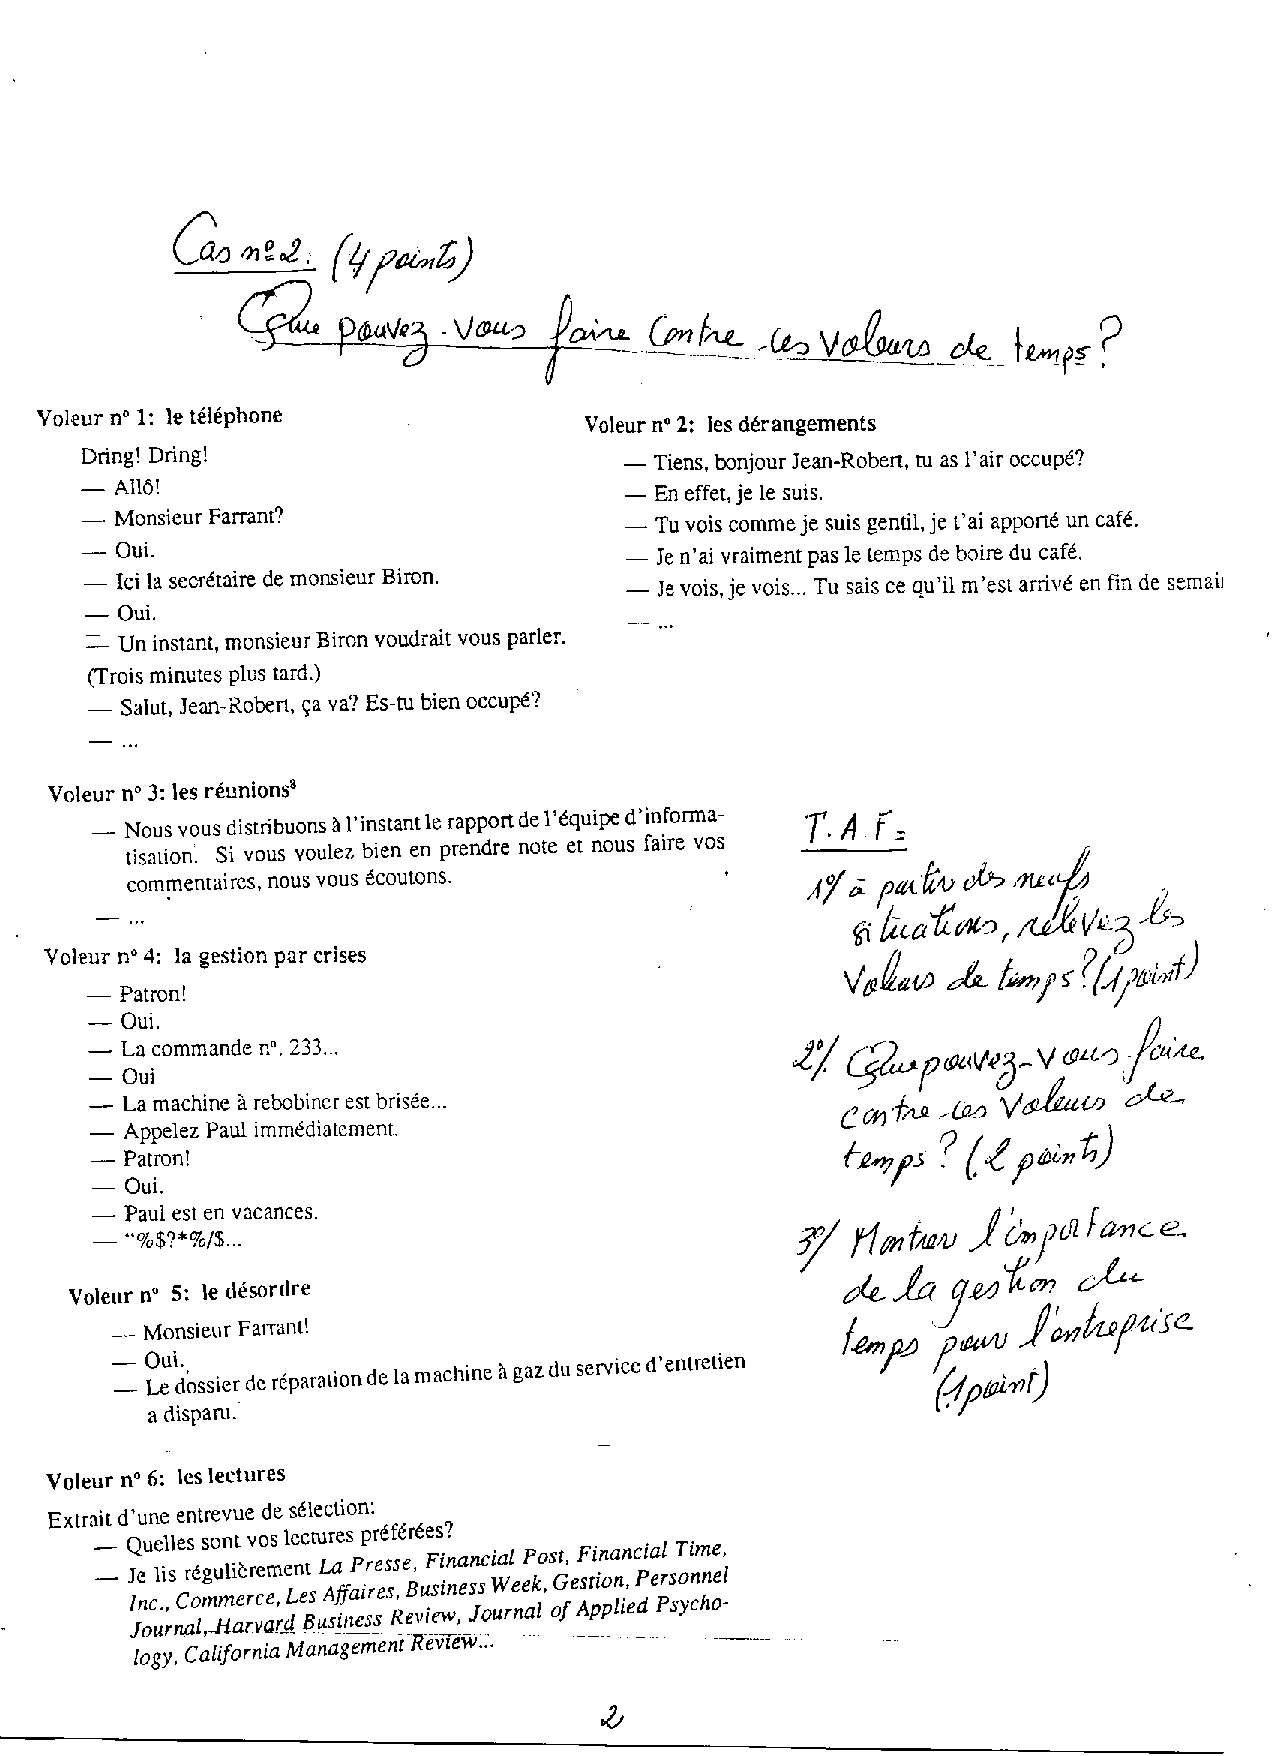 Cas n°2. (4 points)
Que pouvez-vous faire contre ces voleurs de temps?
Voleur n° 1: le téléphone
Dring! Dring!
— Allô!
— Monsieur Farrant?
— Oui.
— Ici la secrétaire de monsieur Biron.
— Oui.
— Un instant, monsieur Biron voudrait vous parler.
(Trois minutes plus tard.)
— Salut, Jean-Robert, ça va? Es-tu bien occupé?
— ...
Voleur n° 2: les dérangements
— Tiens, bonjour Jean-Robert, tu as l'air occupé?
— En effet, je le suis.
— Tu vois comme je suis gentil, je t'ai apporté un café.
— Je n'ai vraiment pas le temps de boire du café.
— Je vois, je vois... Tu sais ce qu'il m'est arrivé en fin de semai
— ...
Voleur n° 3: les réunions³
— Nous vous distribuons à l'instant le rapport de l'équipe d'informa-
tisation. Si vous voulez bien en prendre note et nous faire vos
commentaires, nous vous écoutons.
— ...
Voleur n° 4: la gestion par crises
— Patron!
— Oui.
— La commande n°. 233...
— Oui
— La machine à rebobiner est brisée...
— Appelez Paul immédiatement.
— Patron!
— Oui.
— Paul est en vacances.
— "%$?*%/$...
Voleur n° 5: le désordre
— Monsieur Farrant!
— Oui.
— Le dossier de réparation de la machine à gaz du service d'entretien
a disparu.
Voleur n° 6: les lectures
Extrait d'une entrevue de sélection:
— Quelles sont vos lectures préférées?
— Je lis régulièrement La Presse, Financial Post, Financial Time,
Inc., Commerce, Les Affaires, Business Week, Gestion, Personnel
Journal, Harvard Business Review, Journal of Applied Psycho-
logy, California Management Review...
T.A.F=
1°/ à partir des neufs
situations, relevez les
voleurs de temps? (1 point)
2°/. Que pouvez-vous faire
contre ces voleurs de
temps? (2 points)
3°/ Montrer l'importance
de la gestion du
temps pour l'entreprise
(1 point)
2